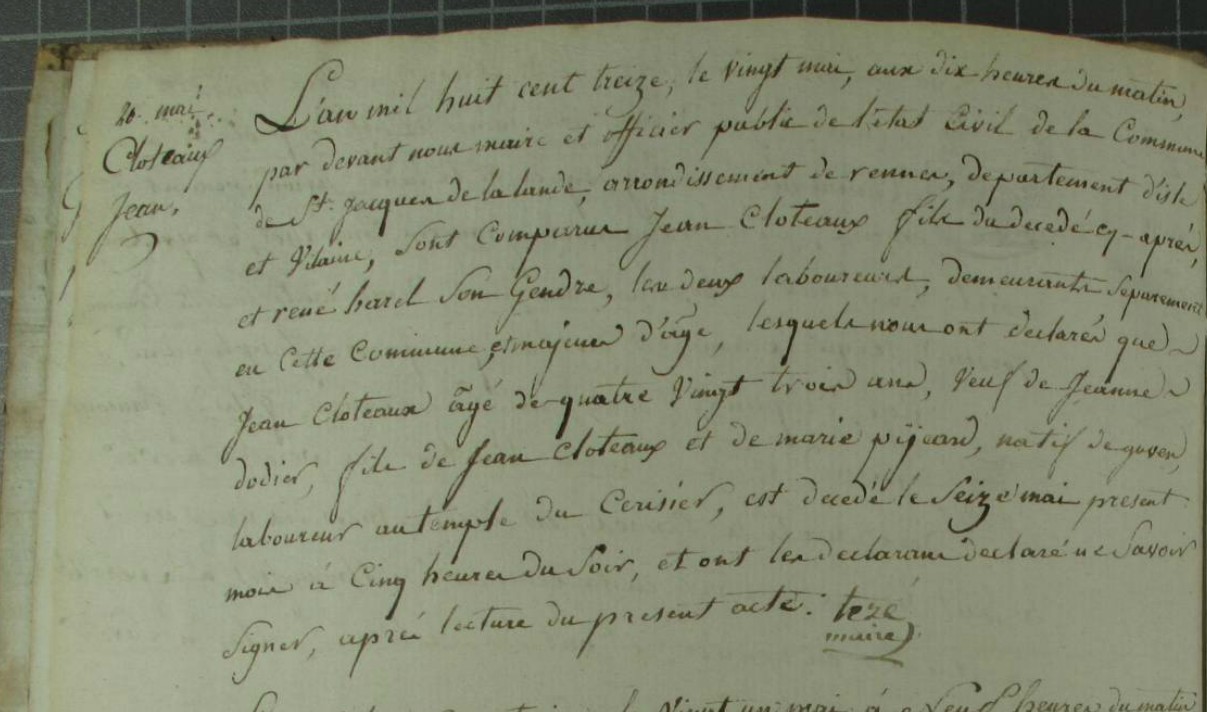 20 mai
Cloteaux
Jean,
L'an mil huit cent treize, le vingt mai, aux dix heures du matin,
par devant nous maire et officier public de l'état Civil de la Commune
de St. Jacques de la lande, arrondissement de rennes, departement d'isle
et Vilaine, sont Comparus Jean Cloteaux fils du decedé cy-après,
et rené harel son Gendre, les deux laboureurs, demeurants separement
en cette Commune et majeurs d'âge, lesquels nous ont declarés que
Jean Cloteaux âgé de quatre Vingt trois ans, Veuf de Jeanne
dodier, fils de Jean Cloteaux et de marie pijeard, natif de goven,
laboureur au temple du Cerisier, est decedé le Seize mai present
mois à Cinq heures du Soir, et ont les declarans declaré ne Savoir
Signer, après lecture du present acte. tezé
maire
Vingt un mai, à neuf heures du matin